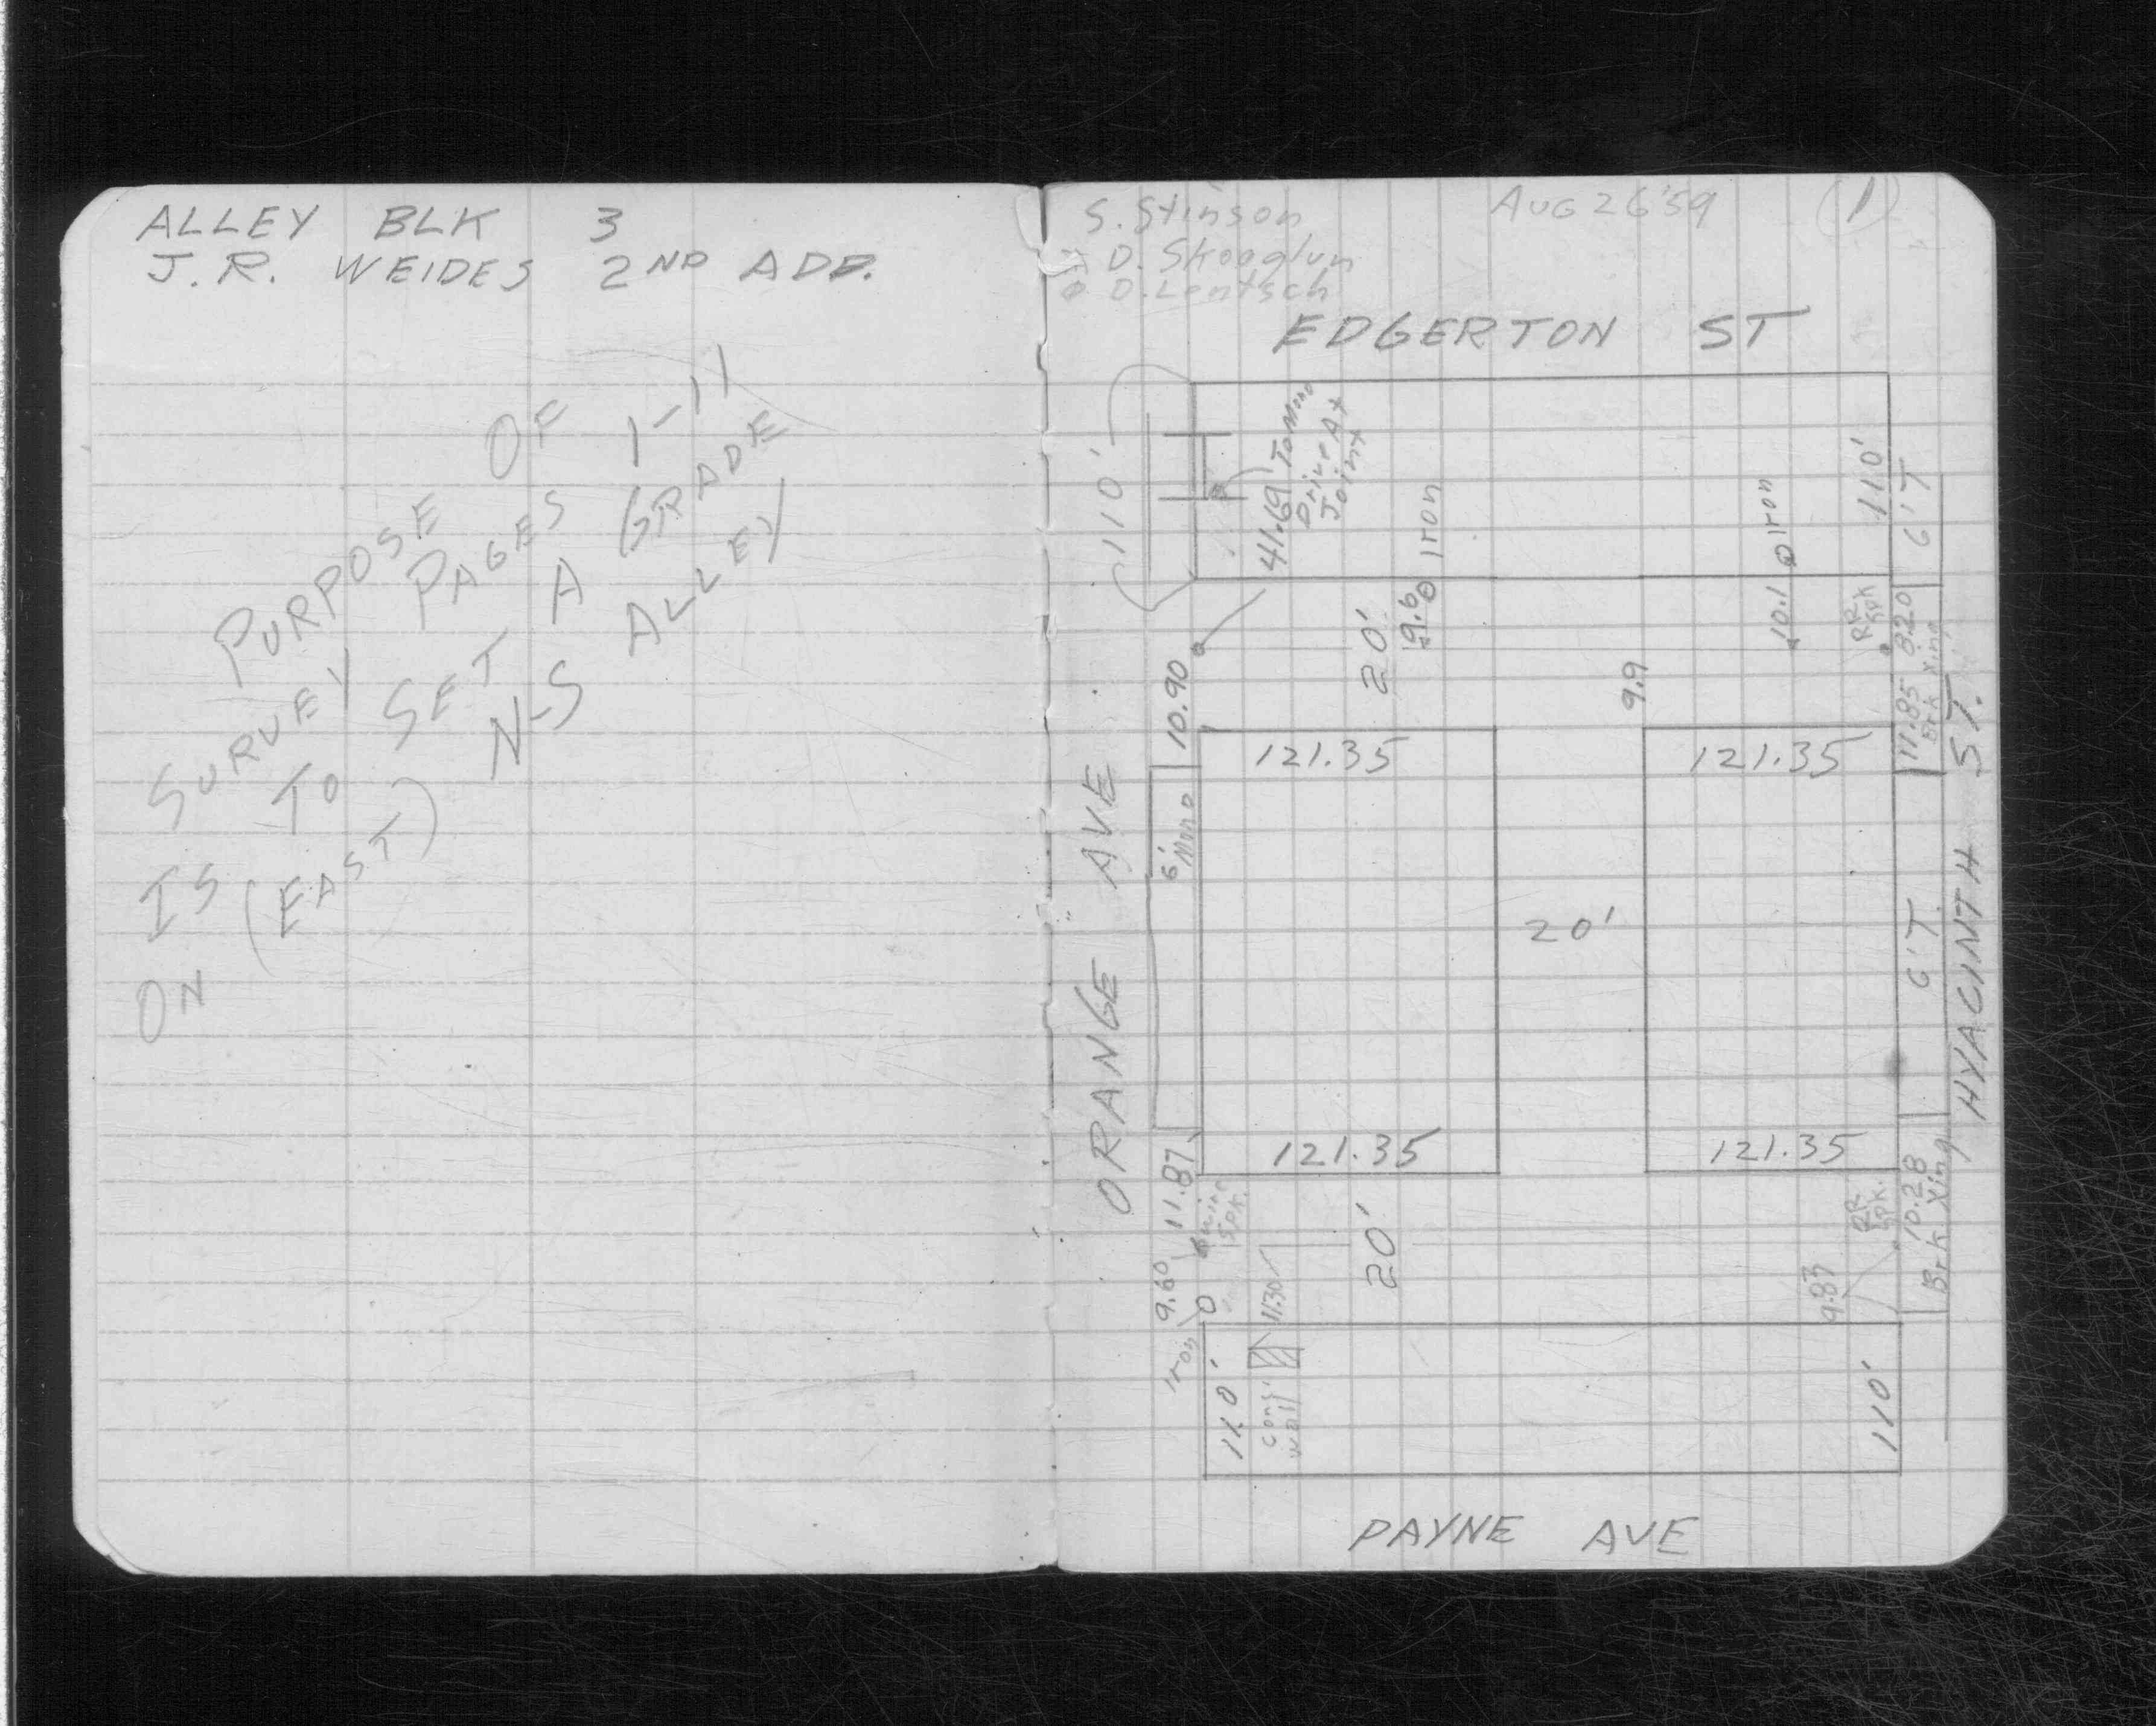 ALLEY BLK 3
J.R. WEIDES 2ND ADD.
PURPOSE OF
SURVEY PAGES 1-11
IS TO SET A GRADE
ON (EAST) N-S ALLEY
S. Stinson
D. Skooglun
D. Lentsch
AUG 26 '59
1
EDGERTON ST
110'
41.69 To Mono
Drive At
Joint
Iron
Iron
110'
6'T
20'
9.6
10.1
RR
Spk
8.20
11.85
Brk Xing
10.90
9.9
121.35
121.35
6'
Mono
ORANGE AVE
20'
6'T
HYACINTH ST.
121.35
121.35
11.87
9.60
Spk.
Iron
11.30
20'
9.87
RR
Spk.
10.28
Brk Xing
110'
Conc
Wall
110'
PAYNE AVE